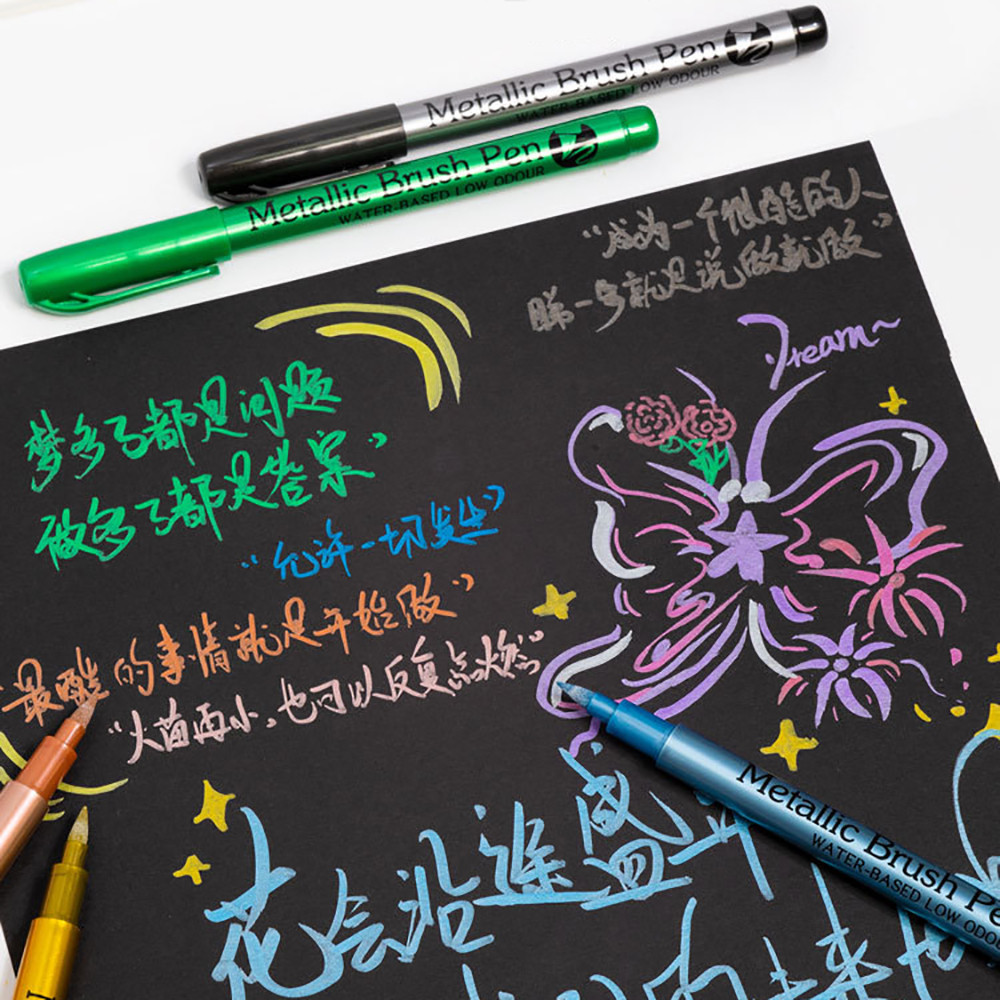 Metallic Brush Pen
WATER-BASED LOW ODOUR
Metallic Brush Pen
WATER-BASED LOW ODOUR
“成为一个很酷的人
第一步就是说做就做”
Dream~
梦多了都是问题
做多了都是答案”
“允许一切发生”
最酷的事情就是开始做”
“火苗再小,也可以反复点燃”
花会沿途盛开
的未来也
Metallic Brush Pe
WATER-BASED LOW ODOU